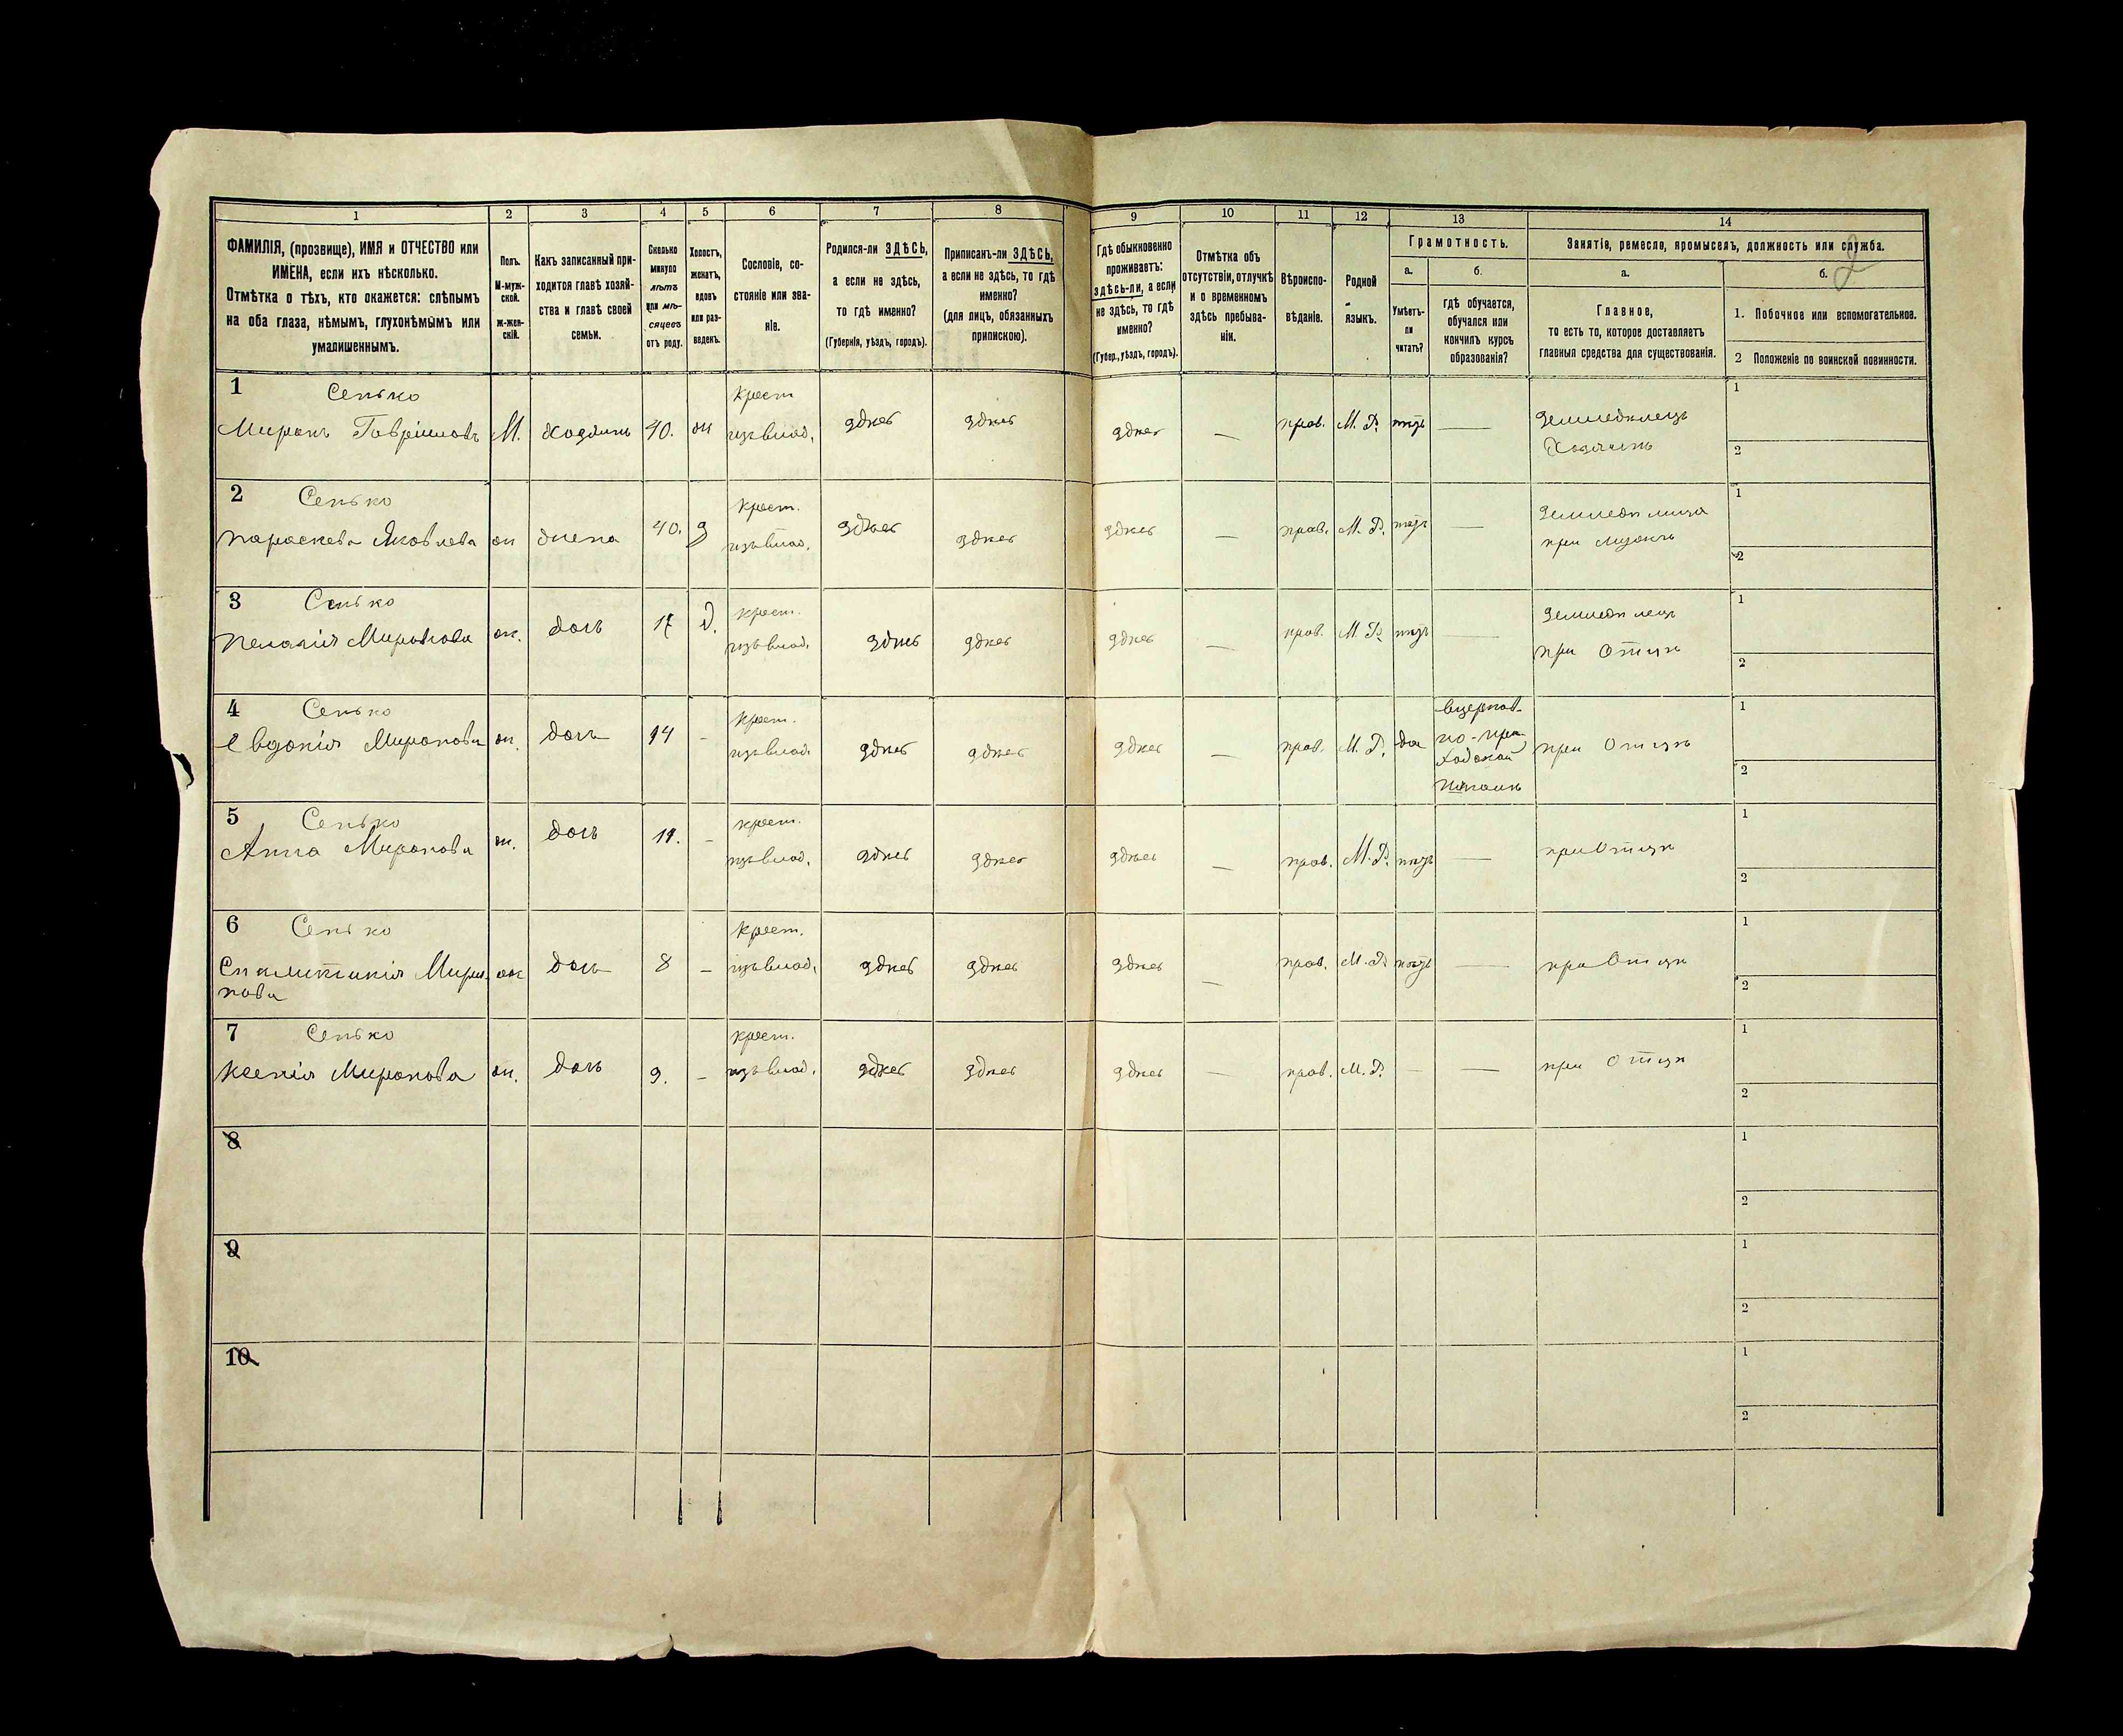 1 2 3 4 5 6 7 8 9 10 11 12 13 14
ФАМИЛІЯ, (прозвище), ИМЯ и ОТЧЕСТВО или
ИМЕНА, если ихъ нѣсколько.
Отмѣтка о тѣхъ, кто окажется: слѣпымъ
на оба глаза, нѣмымъ, глухонѣмымъ или
умалишеннымъ.
Полъ.
М-муж-
ской.
ж-жен-
скій.
Какъ записанный при-
ходится главѣ хозяй-
ства и главѣ своей
семьи.
Сколько
минуло
лѣтъ
или мѣ-
сяцевъ
отъ роду.
Холостъ,
женатъ,
вдовъ
или раз-
веденъ.
Сословіе, со-
стояніе или зва-
ніе.
Родился-ли ЗДѢСЬ,
а если не здѣсь,
то гдѣ именно?
(Губернія, уѣздъ, городъ).
Приписанъ-ли ЗДѢСЬ,
а если не здѣсь, то гдѣ
именно?
(для лицъ, обязанныхъ
припискою).
Гдѣ обыкновенно
проживаетъ:
здѣсь-ли, а если
не здѣсь, то гдѣ
именно?
(Губер., уѣздъ, городъ).
Отмѣтка объ
отсутствіи, отлучкѣ
и о временномъ
здѣсь пребыва-
ніи.
Вѣроиспо-
вѣданіе.
Родной
языкъ.
Грамотность.
а.
Умѣетъ-
ли
читать?
б.
гдѣ обучается,
обучался или
кончилъ курсъ
образованія?
Занятіе, ремесло, промыселъ, должность или служба.
а.
Главное,
то есть то, которое доставляетъ
главныя средства для существованія.
б.
2
1. Побочное или вспомогательное.
2 Положеніе по воинской повинности.
1 Сенько крест. 1
Миронъ Гавріиловъ М. Хозяинъ 40. ж изъ влад. здѣсь здѣсь здѣсь — прав. М. Р. нѣтъ — Земледѣлецъ
Хозяинъ 2
2 Сенько крест. 1
Параскева Яковлева ж жена 40. з изъ влад. здѣсь здѣсь здѣсь — прав. М. Р. нѣтъ —
при мужѣ 2
3 Сенько крест. 1
Пелагія Миронова ж. дочь 17 д. изъ влад. здѣсь здѣсь здѣсь — прав. М. Р. нѣтъ —
при Отцѣ 2
4 Сенько крест. 1
Евдокія Миронова ж. дочь 14 - изъ влад. здѣсь здѣсь здѣсь — прав. М. Р. да вцерков-
но-при-
ходской
школѣ при Отцѣ 2
5 Сенько крест. 1
Анна Миронова ж. дочь 11. - изъ влад. здѣсь здѣсь здѣсь — прав. М. Р. нѣтъ — при Отцѣ 2
6 Сенько крест. 1
Миро-
нова ж дочь 8 - изъ влад. здѣсь здѣсь здѣсь — прав. М. Р. нѣтъ — при Отцѣ 2
7 Сенько крест. 1
Ксенія Миронова ж. дочь 9. - изъ влад. здѣсь здѣсь здѣсь — прав. М. Р. — — при Отцѣ 2
8 1
2
9 1
2
10 1
2